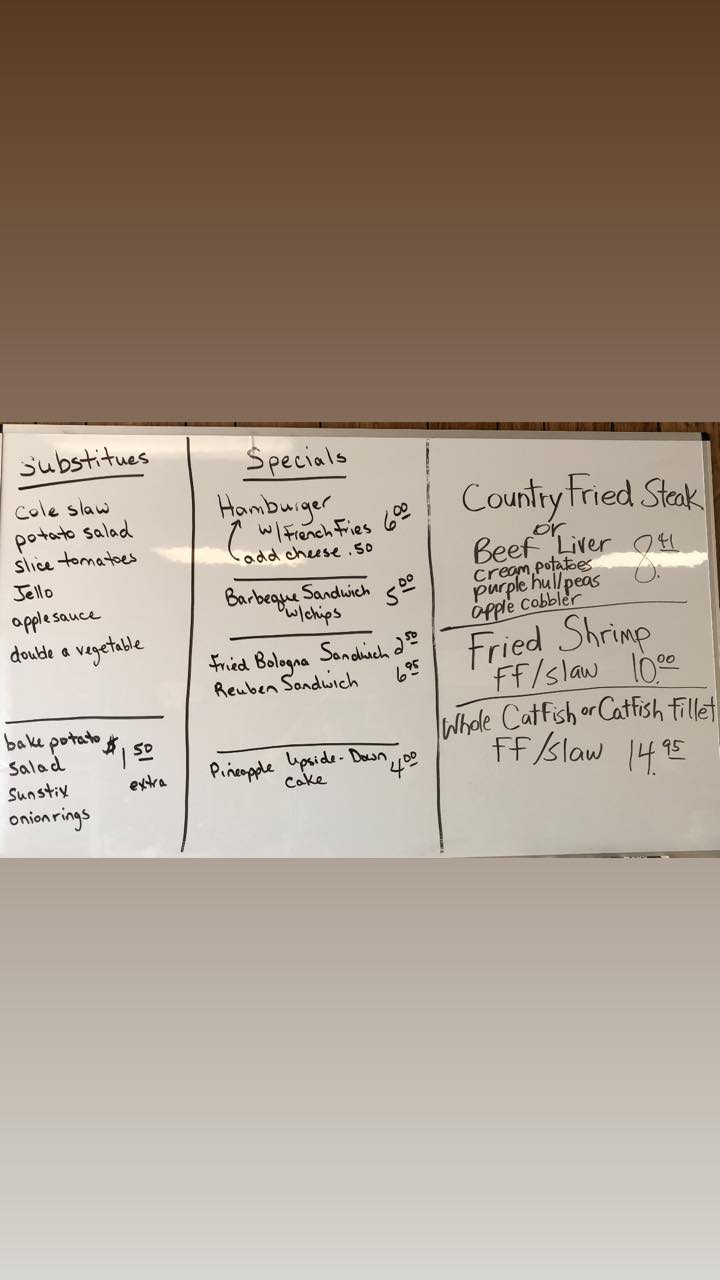 Substitues
cole slaw
potato salad
slice tomatoes
Jello
applesauce
double a vegetable
bake potato $1 50
Salad
Sunstix extra
onion rings
Specials
Hamburger
w/French Fries 6 00
add cheese .50
Barbeque Sandwich 5 00
w/chips
Fried Bologna Sandwich 2 50
Reuben Sandwich 6 95
Pineapple Upside-Down 4 00
cake
Country Fried Steak
or
Beef Liver 8. 41
cream potatoes
purple hull peas
apple cobbler
Fried Shrimp
FF/slaw 10. 00
Whole Catfish or Catfish Fillet
FF/slaw 14. 95